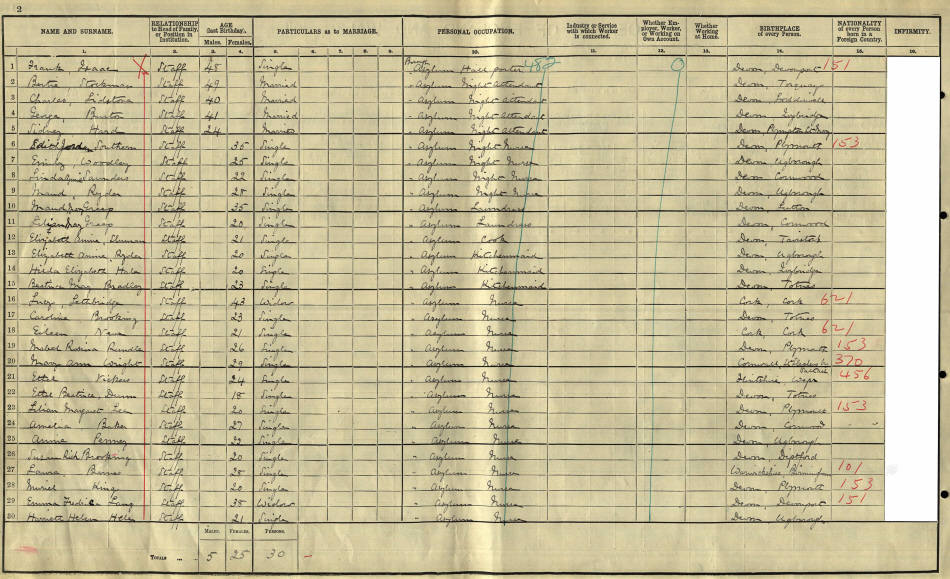 2
NAME AND SURNAME. RELATIONSHIP to Head of Family, or Position in Institution. AGE (last Birthday). PARTICULARS as to MARRIAGE. PERSONAL OCCUPATION. Industry or Service with which Worker is connected. Whether Employer, Worker, or Working on Own Account. Whether Working at Home. BIRTHPLACE of every Person. NATIONALITY of every Person born in a Foreign Country. INFIRMITY.
Males. Females.
1. 2. 3. 4. 5. 6. 7. 8. 9. 10. 11. 12. 13. 14. 15. 16.
1 Frank Isaac Staff 48 Single Asylum Hall porter 0 Devon, Devonport 151
2 Stockman Staff 49 Married Asylum Night Attendant Devon, Torquay
3 Charles, Lidstone Staff 40 Married Asylum Night Attendant Devon, Loddiswell
4 George Burton Staff 41 Married Asylum Night Attendant Devon, Ivybridge
5 Sidney Hard Staff 24 Married Asylum Night Attendant Devon, Plympton St Mary
6 Southern Staff 35 Single Asylum Night Nurse Devon, Plymouth 153
7 Emily Woodley Staff 25 Single Asylum Night Nurse Devon, Ugborough
8 Saunders Staff 22 Single Asylum Night Nurse Devon, Cornwood
9 Maud Ryder Staff 28 Single Asylum Night Nurse Devon, Ugborough
10 Staff 35 Single Asylum Laundress Devon, Sutton
11 Staff 20 Single Asylum Laundress Devon, Cornwood
12 Elizabeth Annie, Staff 21 Single Asylum Cook Devon, Tavistock
13 Elizabeth Annie, Ryder Staff 20 Single Asylum Kitchenmaid Devon, Ugborough
14 Hilda Elizabeth Staff 20 Single Asylum Kitchenmaid Devon, Ivybridge
15 Beatrice May Bradley Staff 23 Single Asylum Kitchenmaid Devon, Totnes
16 Lucy, Lethbridge Staff 43 Widow Asylum Nurse Cork, Cork 621
17 Caroline Brooking Staff 23 Single Asylum Nurse Devon, Totnes
18 Eileen Staff 21 Single Asylum Nurse Cork, Cork 621
19 Mabel Rosina Rundle Staff 26 Single Asylum Nurse Devon, Plymouth 153
20 Mary Ann Wright Staff 29 Single Asylum Nurse Cornwall, 370
21 Ethel Vickers Staff 24 Single Asylum Nurse Flintshire, 456
22 Ethel Beatrice, Dunn Staff 18 Single Asylum Nurse Devon, Totnes
23 Lilian Margaret Lee Staff 20 Single Asylum Nurse Devon, Plymouth 153
24 Amelia Baker Staff 27 Single Asylum Nurse Devon, Cornwood
25 Annie Penney Staff 22 Single Asylum Nurse Devon, Ugborough
26 Susan Rich Brooking Staff 20 Single Asylum Nurse Devon, Diptford
27 Laura Staff 28 Single Asylum Nurse Warwickshire, Birmingham 101
28 Muriel King Staff 20 Single Asylum Nurse Devon, Plymouth 153
29 Emma Lang Staff 38 Widow Asylum Nurse Devon, Devonport 151
30 Harriett Helen Staff 21 Single Asylum Nurse Devon, Ugborough
MALES. FEMALES. PERSONS.
TOTALS ... ... 5 25 30